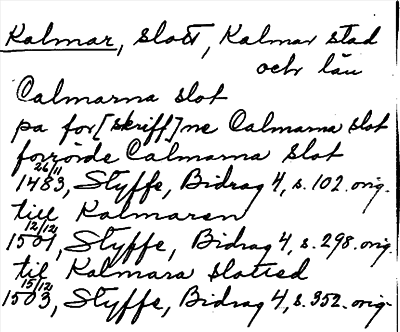 Kalmar, slott, Kalmar stad
och län
Calmarna slot
pa for[skriff]ne Calmarna slot
forrörde Calmarna slot
26/11
1483, Styffe, Bidrag 4, s. 102. orig.
till Kalmaren
12/12
1501, Styffe, Bidrag 4, s. 298. orig.
til Kalmara slotted
15/12
1503, Styffe, Bidrag 4, s. 352. orig.